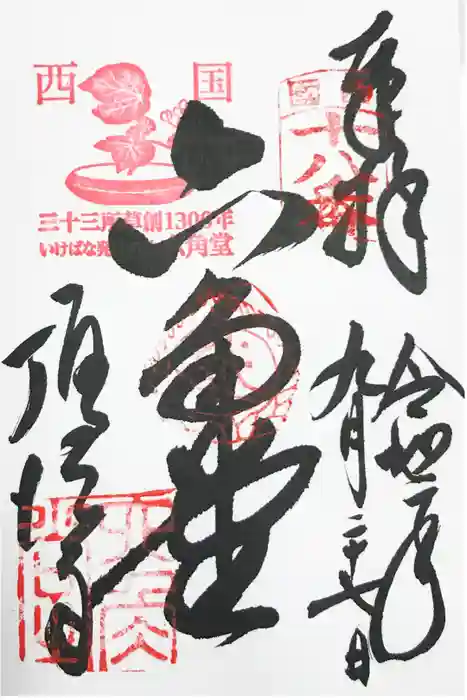 奉拝
令和二年
九月二十七日
六角堂
頂法寺
西国
三十三所草創1300年
いけばな発
六角堂
西国
十八番